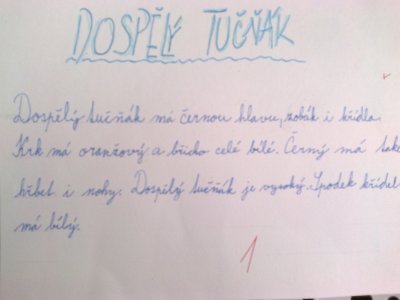 DOSPĚLÝ TUČŇÁK
Dospělý tučňák má černou hlavu, zobák i křídla.
Krk má oranžový a břicho celé bílé. Černý má také
hřbet i nohy. Dospělý tučňák je vysoký. Spodek křídel
má bílý.
1